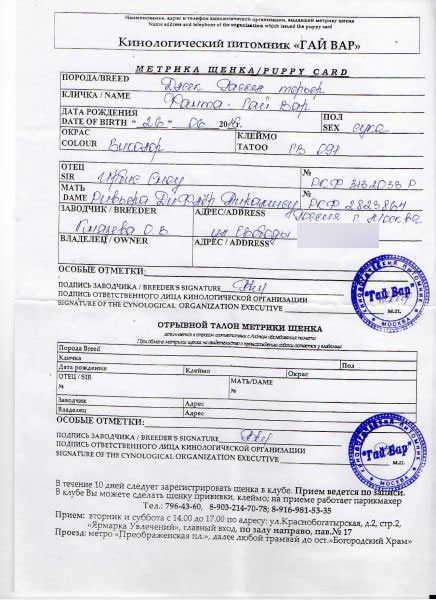 Наименование, адрес и телефон кинологической организации, выдавшей метрику щенка
Name address and telephone of the organization which issued the puppy card
Кинологический питомник «ГАЙ ВАР»
МЕТРИКА ЩЕНКА/PUPPY CARD
ПОРОДА/BREED Джек Рассел терьер
КЛИЧКА / NAME Фанта - Гай Вар
ДАТА РОЖДЕНИЯ ПОЛ
DATE OF BIRTH "26" 06 SEX сука
ОКРАС КЛЕЙМО
COLOUR Биколор TATOO РВ 091
ОТЕЦ №
SIR РКФ 3132033 Р
МАТЬ №
DAME Ривьера РКФ 2823864
ЗАВОДЧИК / BREEDER АДРЕС/ADDRESS Россия г. Москва
О.В. ул Свободы
ВЛАДЕЛЕЦ / OWNER АДРЕС / ADDRESS
ОСОБЫЕ ОТМЕТКИ:
ПОДПИСЬ ЗАВОДЧИКА / BREEDER'S SIGNATURE
ПОДПИСЬ ОТВЕТСТВЕННОГО ЛИЦА КИНОЛОГИЧЕСКОЙ ОРГАНИЗАЦИИ
SIGNATURE OF THE CYNOLOGICAL ORGANIZATION EXECUTIVE М.П.
"Гай Вар"
МОСКВА
ОТРЫВНОЙ ТАЛОН МЕТРИКИ ЩЕНКА
заполняется в строгом соответствии с Актом обследования помета
При обмене метрики щенка на свидетельство о происхождении талон остается у владельца
Порода Breed
Кличка Пол
Дата рождения Клеймо Окрас
ОТЕЦ / SIR МАТЬ/DAME
№ №
Заводчик Адрес
Владелец Адрес
ОСОБЫЕ ОТМЕТКИ:
ПОДПИСЬ ЗАВОДЧИКА / BREEDER'S SIGNATURE
ПОДПИСЬ ОТВЕТСТВЕННОГО ЛИЦА КИНОЛОГИЧЕСКОЙ ОРГАНИЗАЦИИ
SIGNATURE OF THE CYNOLOGICAL ORGANIZATION EXECUTIVE М.П.
"Гай Вар"
МОСКВА
В течение 10 дней следует зарегистрировать щенка в клубе. Прием ведется по записи.
В клубе Вы можете сделать щенку прививки, клеймо; на приеме работает парикмахер
Тел.: 796-43-60, 8-903-214-70-78; 8-916-981-53-35
Прием: вторник и суббота с 14.00 до 17.00 по адресу: ул.Краснобогатырская, д.2, стр.2,
«Ярмарка Увлечений», главный вход, по залу направо, пав.№ 17
Проезд: метро «Преображенская пл.», далее любой трамвай до ост.»Богородский Храм»